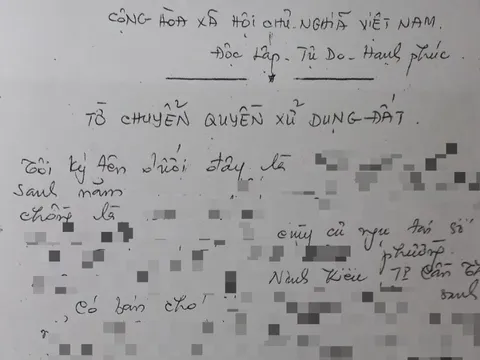 CỘNG HÒA XÃ HỘI CHỦ NGHĨA VIỆT NAM.
Độc Lập - Tự Do - Hạnh phúc.
TỜ CHUYỂN QUYỀN XỬ DỤNG ĐẤT.
Tôi ký tên dưới đây là
sanh năm
chồng là
cùng cư ngụ tại số
phường
Ninh Kiều TP Cần
sanh
, Có bán cho